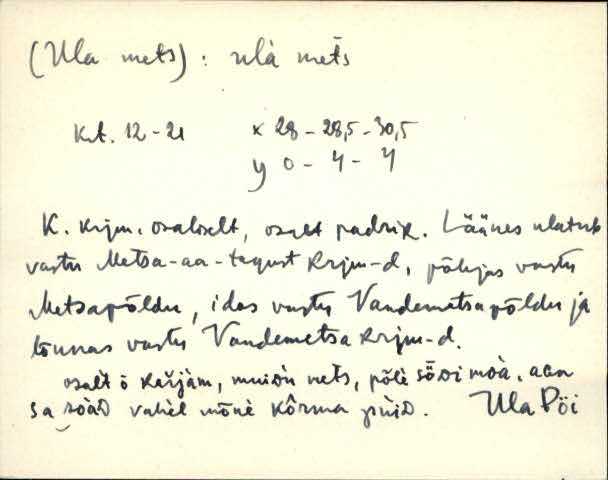 (Ula mets) : ulà mets̆
Krt. 12-21 x 28 - 28,5 - 30,5
y 0 - 4 - 4
K. krjm. osaliselt, osalt padrik. Läänes ulatub
vastu Metsa-aa-tagust krjm-d, põhjas vastu
Metsapõldu, idas vastu Vandemetsapõldu ja
lõunas vastu Vandemetsa krjm-d.
osalt õ kaŕjàm, muidu mets, põlè
sa vahèl mõnè kôrma puid. Ula Põi